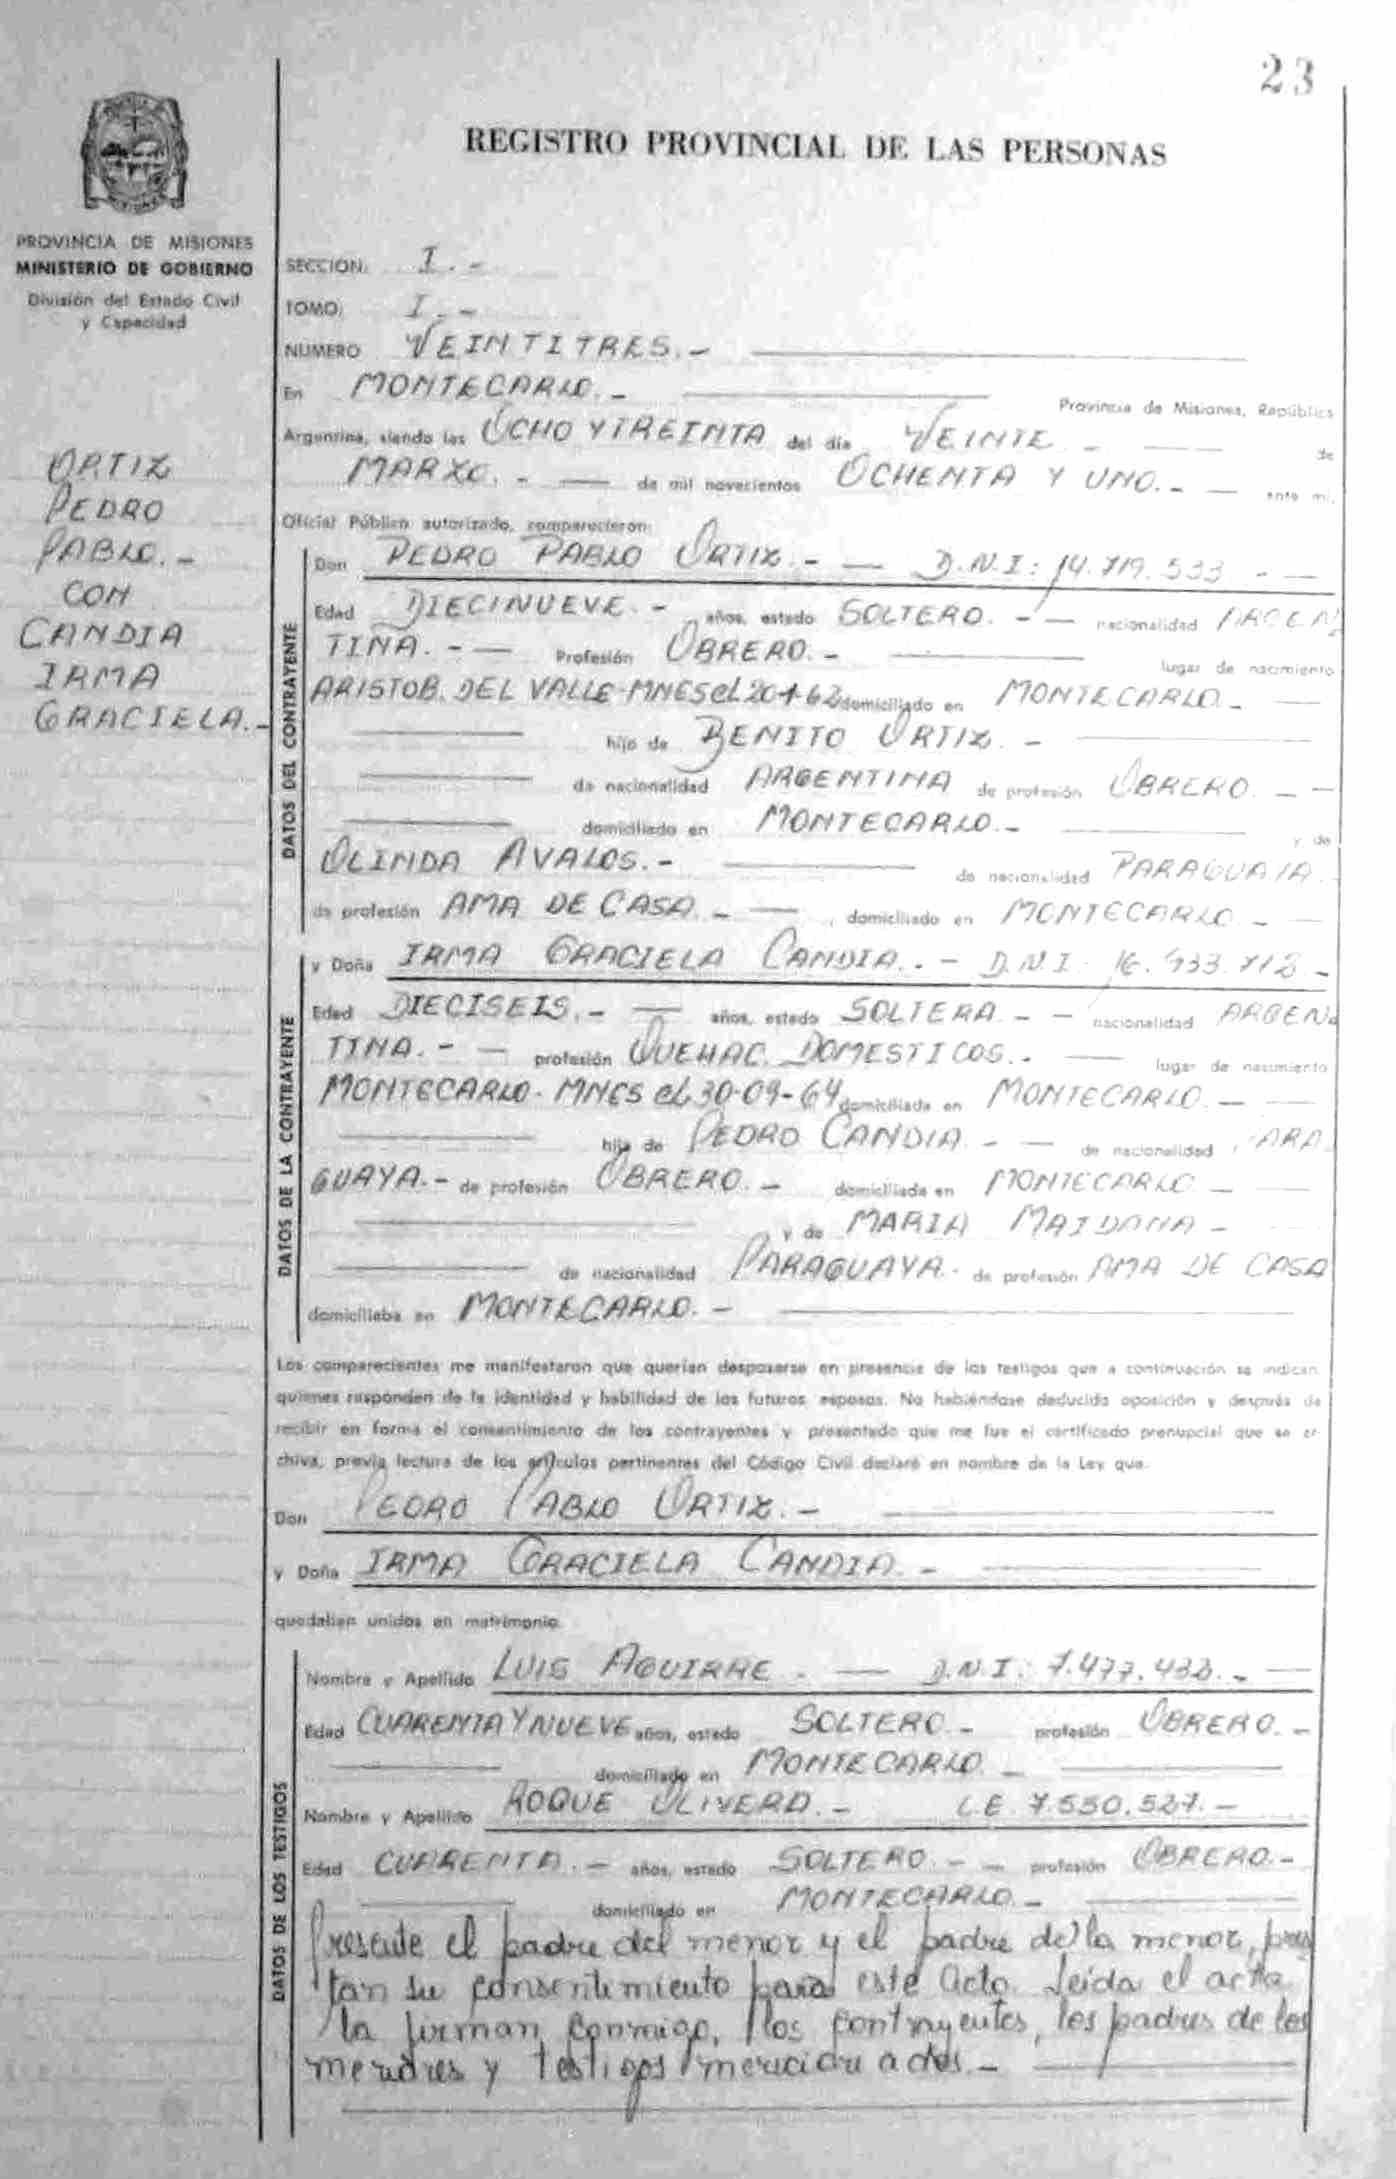 23
REGISTRO PROVINCIAL DE LAS PERSONAS
PROVINCIA DE MISIONES
MINISTERIO DE GOBIERNO
División del Estado Civil
y Capacidad
SECCION: I.-
TOMO: I.-
NUMERO VEINTITRES.-
En MONTECARLO.- Provincia de Misiones, República
Argentina, siendo las OCHO Y TREINTA del día VEINTE.- de
MARZO.- de mil novecientos OCHENTA Y UNO.- ante mi,
Oficial Público autorizado, comparecieron:
ORTIZ
PEDRO
PABLO.-
CON
CANDIA
IRMA
GRACIELA.-
DATOS DEL CONTRAYENTE
Don PEDRO PABLO ORTIZ.- D.N.I: 14.719.533 -
Edad DIECINUEVE.- años, estado SOLTERO.- nacionalidad ARGEN
TINA.- Profesión OBRERO.- lugar de nacimiento
ARISTOB. DEL VALLE-MNES el domiciliado en MONTECARLO.-
hijo de BENITO ORTIZ.-
de nacionalidad ARGENTINA de profesión OBRERO.-
domiciliado en MONTECARLO.- y de
OLINDA AVALOS.- de nacionalidad PARAGUAIA.
de profesión AMA DE CASA.- , domiciliado en MONTECARLO.-
DATOS DE LA CONTRAYENTE
y Doña IRMA GRACIELA CANDIA.- D.N.I.
Edad DIECISEIS.- años, estado SOLTERA.- nacionalidad ARGEN
TINA.- profesión QUEHAC. DOMESTICOS.- lugar de nacimiento
MONTECARLO-MNES el 30-09-64 domiciliada en MONTECARLO.-
hija de PEDRO CANDIA.- de nacionalidad PARA
GUAYA.- de profesión OBRERO.- domiciliado en MONTECARLO.-
y de MARIA MAIDANA-
de nacionalidad PARAGUAYA.- de profesión AMA DE CASA
domiciliaba en MONTECARLO.-
Los comparecientes me manifestaron que querían desposarse en presencia de los testigos que a continuación se indican
quienes responden de la identidad y habilidad de los futuros esposos. No habiéndose deducido oposición y después de
recibir en forma el consentimiento de los contrayentes y presentado que me fue el certificado prenupcial que se ar
chiva, previa lectura de los artículos pertinentes del Código Civil declaré en nombre de la Ley que:
Don PEDRO PABLO ORTIZ.-
y Doña IRMA GRACIELA CANDIA.-
quedaban unidos en matrimonio.
DATOS DE LOS TESTIGOS
Nombre y Apellido LUIS AGUIRRE.- D.N.I: 7.477.432.-
Edad CUARENTA Y NUEVE años, estado SOLTERO.- profesión OBRERO.-
domiciliado en MONTECARLO.-
Nombre y Apellido ROQUE OLIVERA.- L.E. 7.550.527.-
Edad CUARENTA.- años, estado SOLTERO.- profesión OBRERO.-
domiciliado en MONTECARLO.-
Presente el padre del menor y el padre de la menor, pres
tan su consentimiento para este acto. Leida el acta
la firman conmigo, los contrayentes, los padres de los
menores y testigos mencionados.-